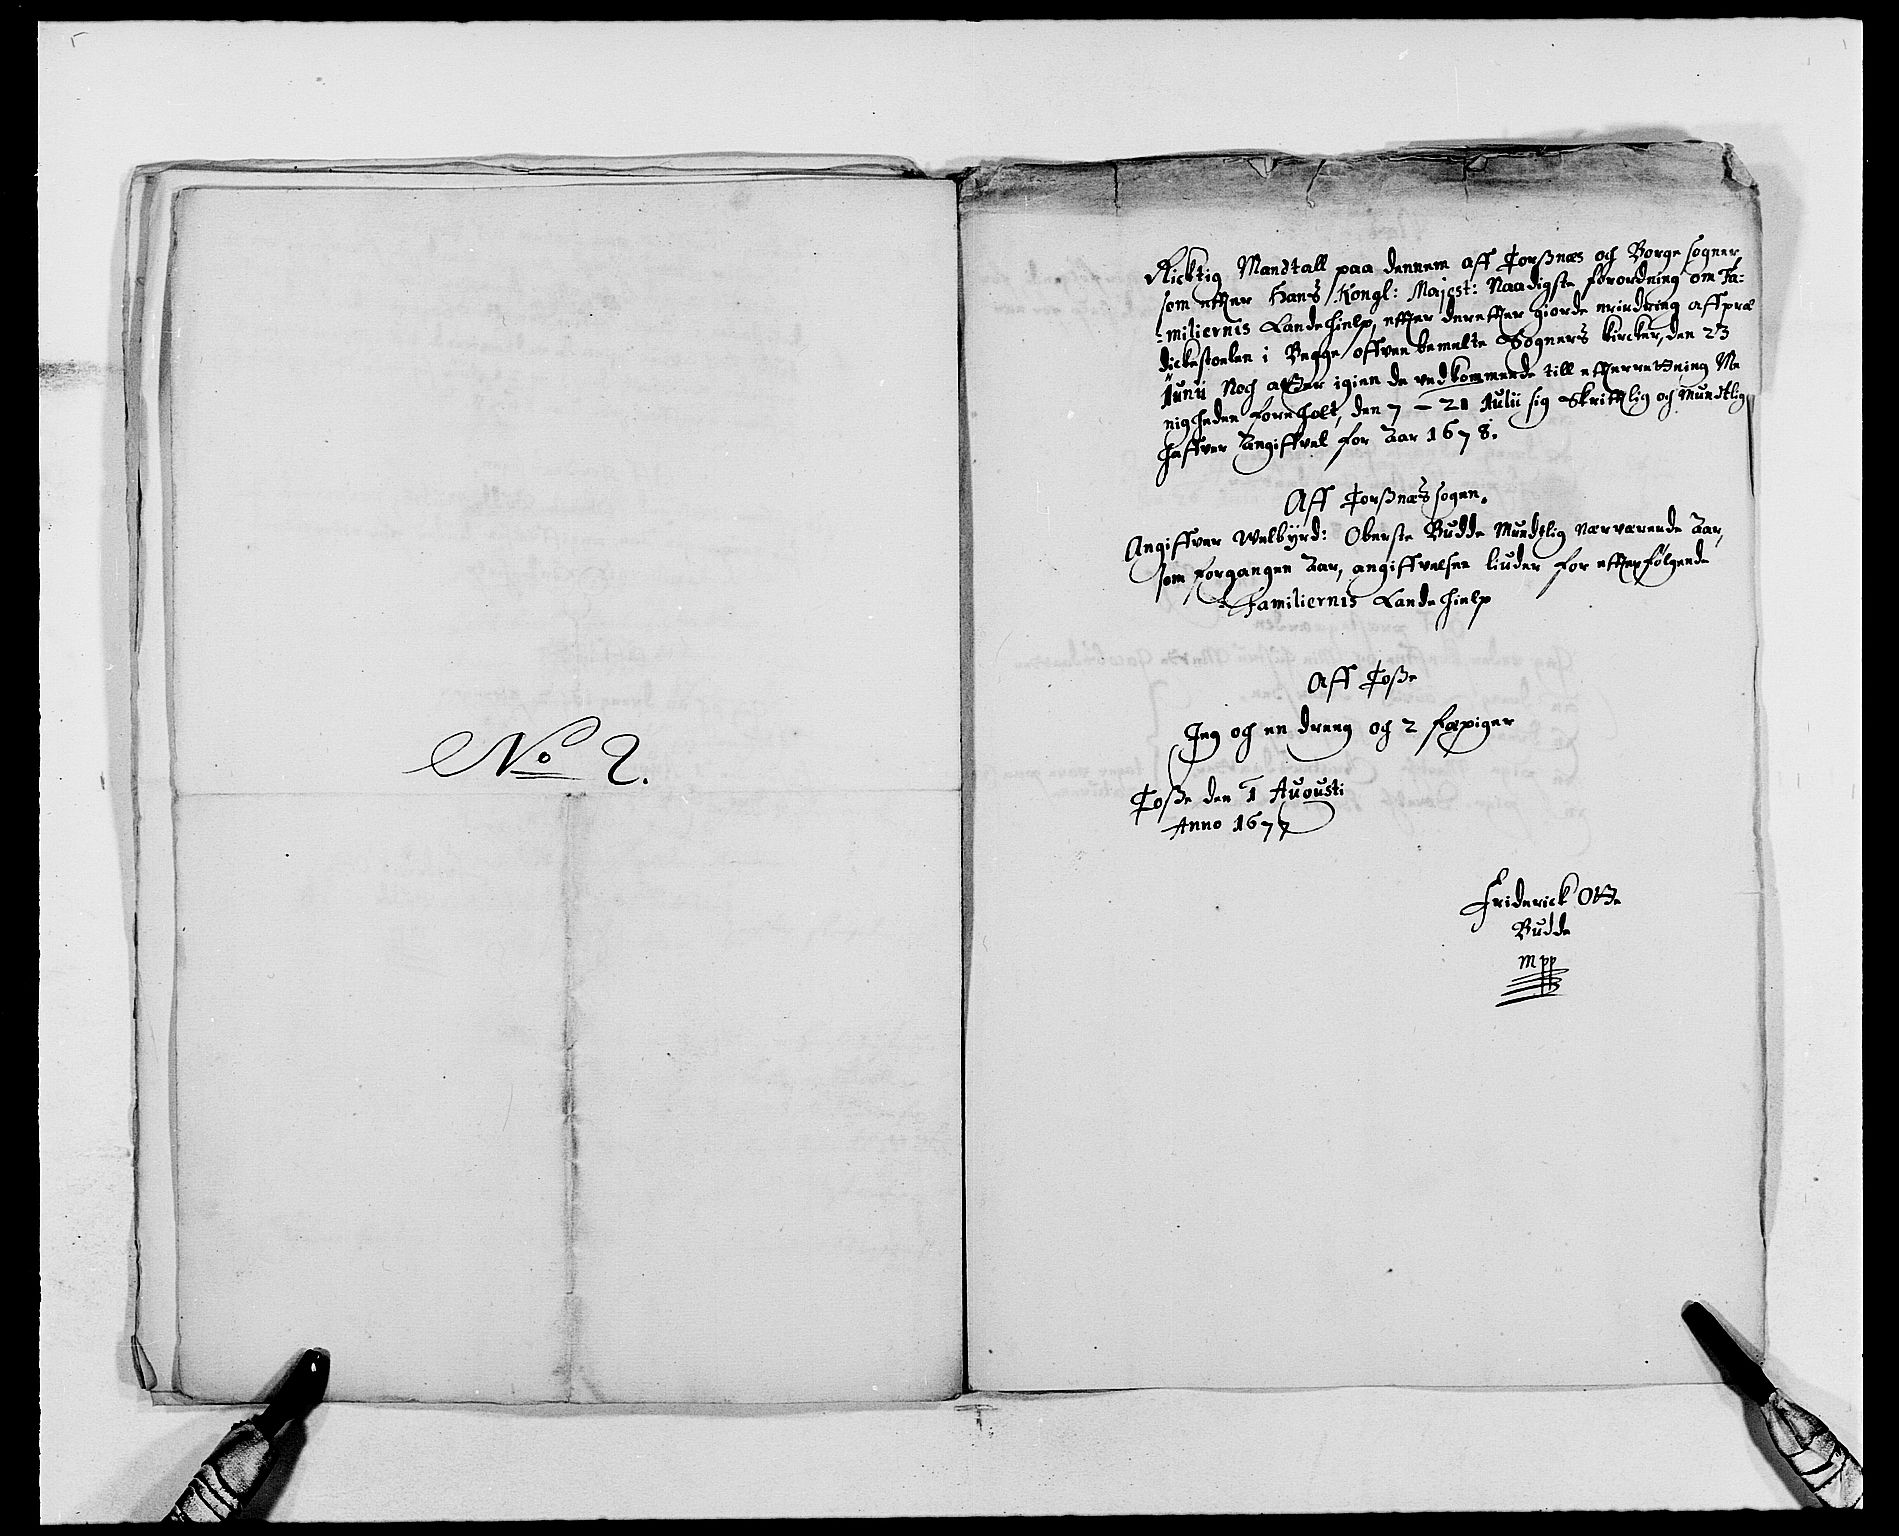 No 2.
Ricktig Mandtall paa dennem aff Torßnæs och Borge sogner,
som effter Hans Kongl: Majest: Naadigste forordning om Fa-
-miliernis Landehielp, effter dereffter giorde erindring aff præ
dickestoelen i Begge offvenbemelte Sogners kircker, den 23
Junii Noch atter igien de vedkommende till effterretning Me
nigheden foreholt, den 7 – 21 Julii sig Skrifftlig och Mundtlig
haffver Angiffvet for Aar 1678.
Aff Torßnæs sogen.
Angiffver Welbyrd: Oberste Budde Mundtlig nærværende Aar,
som forgangen Aar, angiffvelsen liuder for effterfølgende
Familiernis Landehielp
Aff Toße
Jeg och en dreng och 2 piger
Toße den 1 Augusti
Anno 1677
Friderick Otte
Budde
Mpp